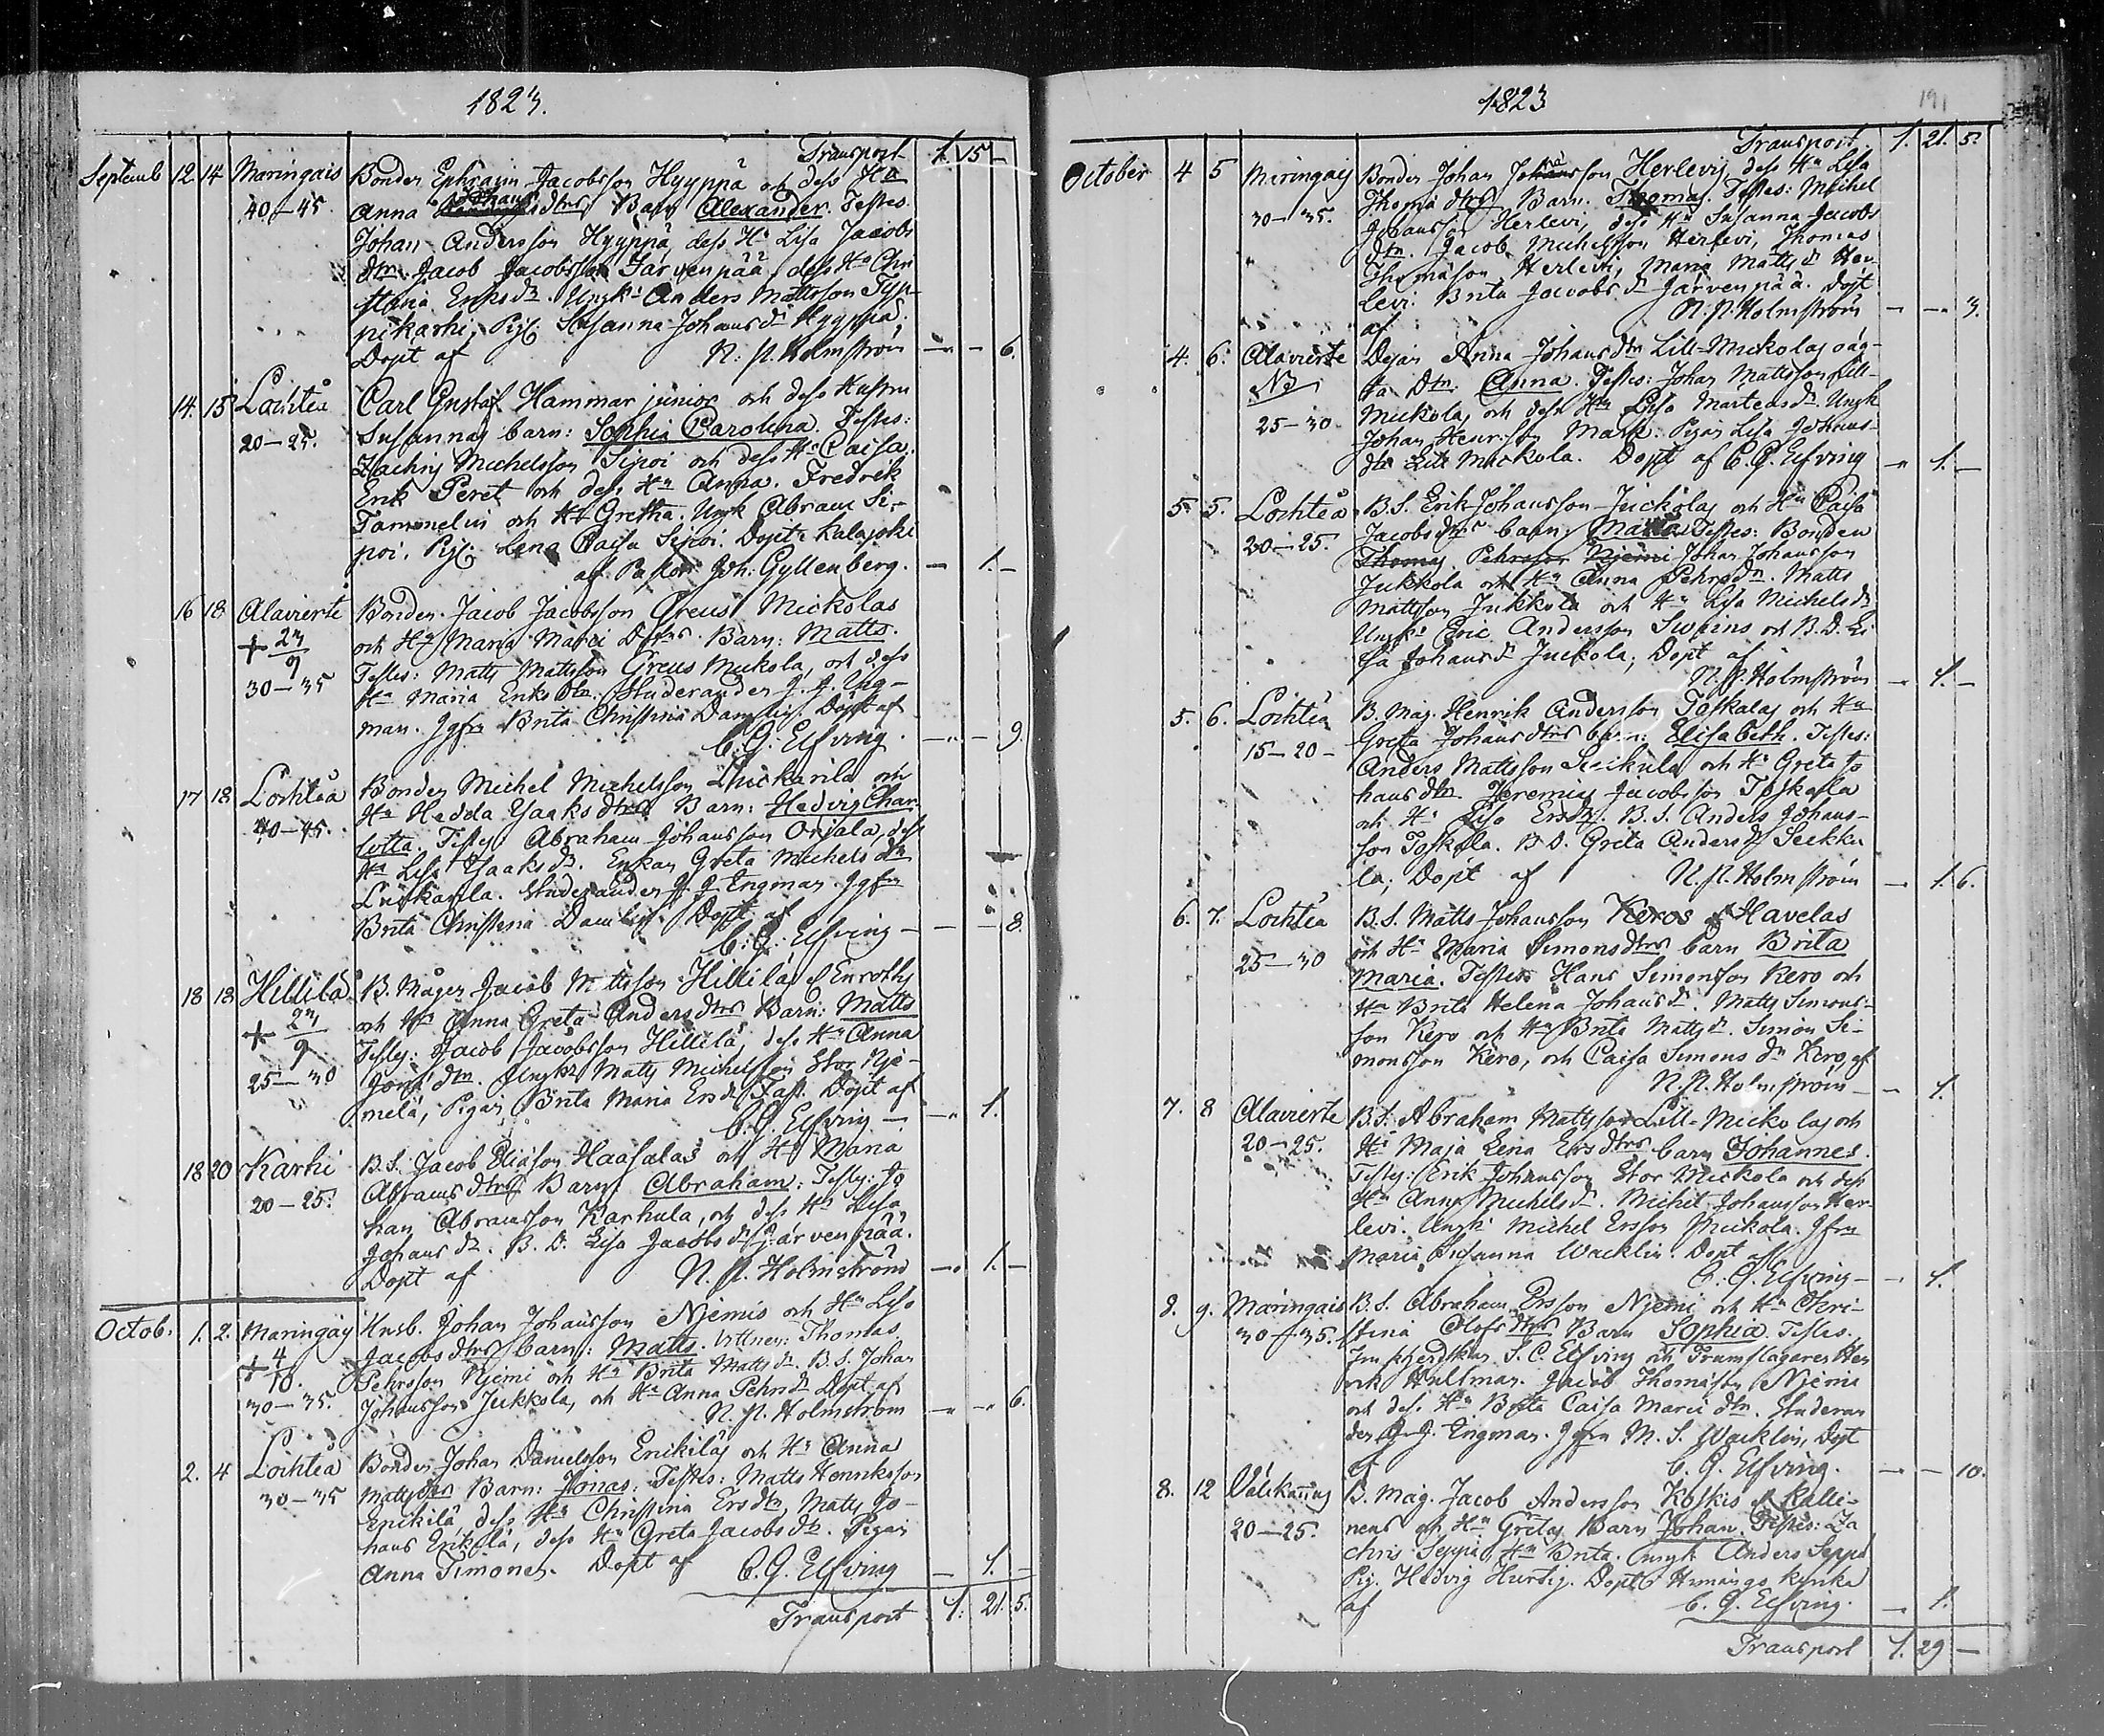 1823.
Transport 1. 15 –
Septemb 12. 14 Maringais Bonden Ephraim Jacobsson Hyyppä och dess Hu
40–45. Anna Johansdtrs Barn Alexander. Testes
Johan Andersson Hyyppä, dess Hu Lisa Jacobs
dtr. Jacob Jacobsson Järvenpää, dess Hu Chri
stina Eriksdr. Ungk: Anders Mattsson Typ-
pikarhi, Pig: Susanna Johansdr Hyyppä.
Dopt af N. P. Holmström – – 6.
14. 15 Lochteå Carl Gustaf Hammar junior och dess Hustru
20–25. Susannas barn: Sophia Carolina. Testes:
Zachris Michelsson Sipoi och dess Hu Caisa.
Erik Peret och dess Hu Anna. Fredrik
Tammelin och Hu Gretha. Ungk Abram Si-
poi. Pig: Lena Caisa Sipoi. Dopt i Kalajoki
af Pastor Joh: Gyllenberg. – 1. –
16 18 Alavierte Bonden Jacob Jacobsson Greus Mickolas
+ 23/9 och Hu Maria Marci Dotrs Barn: Matts.
30–35 Testes: Matts Mattsson Greus Mickola, och dess
Hu Maria Eriks dtr. Studeranden J. J. Eng-
man. Jgfr Brita Christina Damlin. Dopt af
C. G. Elfving. – – 9.
17 18 Lochteå Bonden Michel Michelsson Luckarila och
40–45. Hu Hedda Isaks dtrs Barn: Hedvig Char-
lotta. Testes Abraham Johansson Orjala, dess
Hu Lisa Isaksdr. Enkan Greta Michels dtr
Luckarila. Studeranden J. J. Engman. Jgfr
Brita Christina Damlin. Dopt af
C. G. Elfving – – – 8.
18 18 Hillilä B. Mågen Jacob Mattsson Hillilä l. Enroths
+ 23/9 och Hu Anna Greta Anders dtrs Barn: Matts
25–30 Testes: Jacob Jacobsson Hillilä, dess Hu Anna
dtr. Ungk: Matts Michelsson Stor Nje-
melä, Pigan Brita Maria Ersdr Fast. Dopt af
C. G. Elfving – – 1.
18 20 Karhi B. S. Jacob Eliasson Haasalas och Hu Maria
20–25. Abrams dtrs Barn Abraham: Testes: Jo
han Abramsson Karhula, och dess Hu Lisa
Johans dr. B. D. Lisa Jacobs dr Järvenpää.
Dopt af N. P. Holmström – 1. –
Octob. 1. 2. Maringais Husb. Johan Johansson Njemis och Hu Lisa
+ 4/10. Jacobs dtrs barn: Matts. Vittnen: Thomas
30–35. Pehrsson Njemi och Hu Brita Mattsdr. B. S. Johan
Johansson Jukkola, och Hu Anna Pehrsdr. Dopt af
N. P. Holmström – – 6.
2. 4 Lochteå Bonden Johan Danielsson Erikiläs och Hu Anna
30–35 Matts dtrs Barn: Jonas: Testes: Matts Henriksson
Erikilä dess Hu Christina Ersdtr, Matts Jo-
hans Erikilä, dess Hu Greta Jacobs dr. Pigan
Anna Simones. Dopt af C. G. Elfving – 1. –
Transport 1. 21. 5.
1823
191
Transport 1. 21. 5.
October 4 5 Maringais Bonden Johan Johansson Herlevis, dess Hu Lisa
30–35. Thomæ dtrs Barn. Thomas. Testes: Michel
Johansson Herlevi, dess Hu Susanna Jacobs
dtr. Jacob Michelsson Herlevi, Thomas
Thomæson Herlevi, Maria Mattsdr Her-
levi: Brita Jacobs dr Järvenpää. Dopt
af N. P. Holmström – – 3.
4. 6. Alavierte Pigan Anna Johans dtr Lill-Mickolas oäg-
N3 ta Dtr. Anna. Testes: Johan Mattsson Lill-
25–30. Mickola, och dess Hu Lisa Mårtensdr. Ungk
Johan Henrsson Mark. Pigan Lisa Johans-
dtr Lill Mickola. Dopt af C. G. Elfving – 1. –
5. 5. Lochteå B. S. Erik Johansson Juckolas och Hu Caisa
20–25. Jacobs dtrs barn: Maria Testes: Bonden
Thomas Pehrsson Njemi Johan Johansson
Jukkola och Hu Anna Pehrsdr. Matts
Mattsson Jukkola och Hu Lisa Michelsdr
Ungk: Eric Andersson Sweins och B. D. Li
sa Johansdr Juckola, Dopt af
N. P. Holmström – 1. –
5. 6. Lochteå B. Mag. Henrik Andersson Toskalas och Hu
15–20– Greta Johans dtrs barn: Elisabeth. Testes:
Anders Mattsson Seikula och Hu Greta Jo
hansdtr Jeremias Jacobsson Toskala
och Hu Lisa Ersdtr. B. S. Anders Johans-
son Toskala. B D. Greta Andersdr Seikku
la; Dopt af N. P. Holmström – 1. 6.
6. 7. Lochteå B. S. Matts Johansson Keros l. Havelas
25–30 och Hu Maria Simons dtrs barn Brita
Maria. Testes Hans Simonsson Kero och
Hu Brita Helena Johansdr. Matts Simons-
son Kero och Hu Brita Mattsdr. Simon Si-
monsson Kero, och Caisa Simons dr Kero, af
N. P. Holmström – 1.
7. 8 Alavierte B. S. Abraham Mattsson Lill-Mickolas och
20–25. Hu Maja Lena Ers dtrs barn Johannes.
Testes: Erik Johansson Stor Mickola och dess
Hu Anna Michelsdr. Michel Johansson Her-
levi. Ungk: Michel Ersson Mickola. Jgfr
Maria Susanna Wacklin. Dopt af
C. G. Elfving – – 1.
8. 9. Maringais B. S. Abraham Ersson Njemi och Hu Chri-
30–35. stina Olofs dtrs Barn Sophia. Testes.
S. C. Elfving och Trumslagaren Hen
rik Hullman. Jacob Thomæson Njemi
och dess Hu Brita Caisa Marci dtr. Studeran
den J. J. Engman. Jgfr M. S. Wacklin, Dopt
af C. G. Elfving. – – 10.
8. 12 Välikangas B. Mag. Jacob Andersson Koskis l. Kalli-
20–25. nens och Hu Gretas Barn Johan. Testes: Za
chris Seppä, Hu Brita. Ungk Anders Seppä
Pig. Hedvig Hurtig. Dopt i Himango kyrka
af C. G. Elfving. – 1.
Transport 1. 29 –